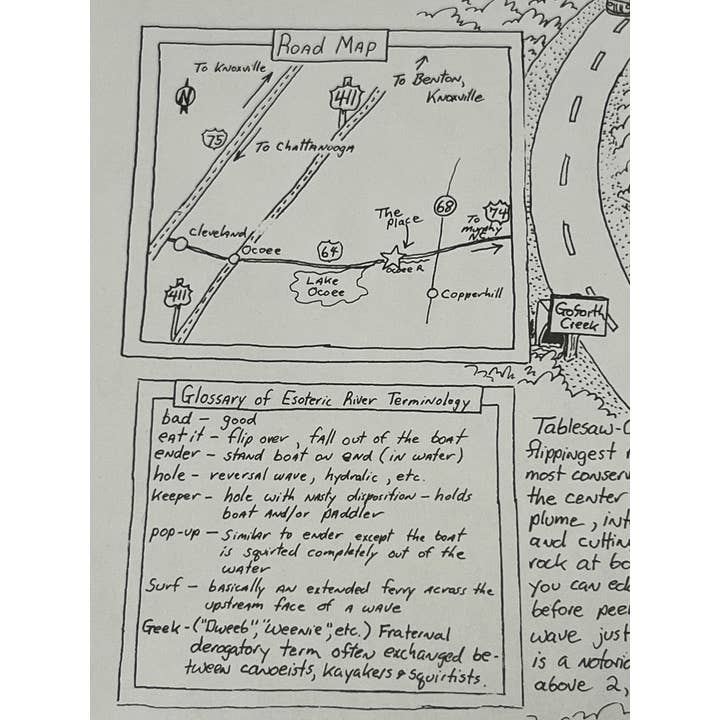 ROAD MAP
To KNOXVILLE
N
411
To BENTON,
KNOXVILLE
75
To CHATTANOOGA
68
The
Place
To
MURPHY
N.C.
74
Cleveland
Ocoee
64
Ocoee R.
LAKE
OCOEE
411
Copperhill
Goforth
Creek
Glossary of Esoteric River Terminology
bad - good
eat it - flip over, fall out of the boat
ender - stand boat on end (in water)
hole - reversal wave, hydralic, etc.
Keeper - hole with nasty disposition - holds
boat and/or paddler
pop-up - similar to ender except the boat
is squirted completely out of the
water
Surf - basically an extended ferry across the
upstream face of a wave
Geek - ("Dweeb", "Weenie", etc.) Fraternal
derogatory term often exchanged be-
tween canoeists, kayakers & squirtists.
Tablesaw-
flippingest
most conser
the center
plume, int
and cuttin
rock at bo
you can ed
before pee
wave just
is a notorio
above 2,